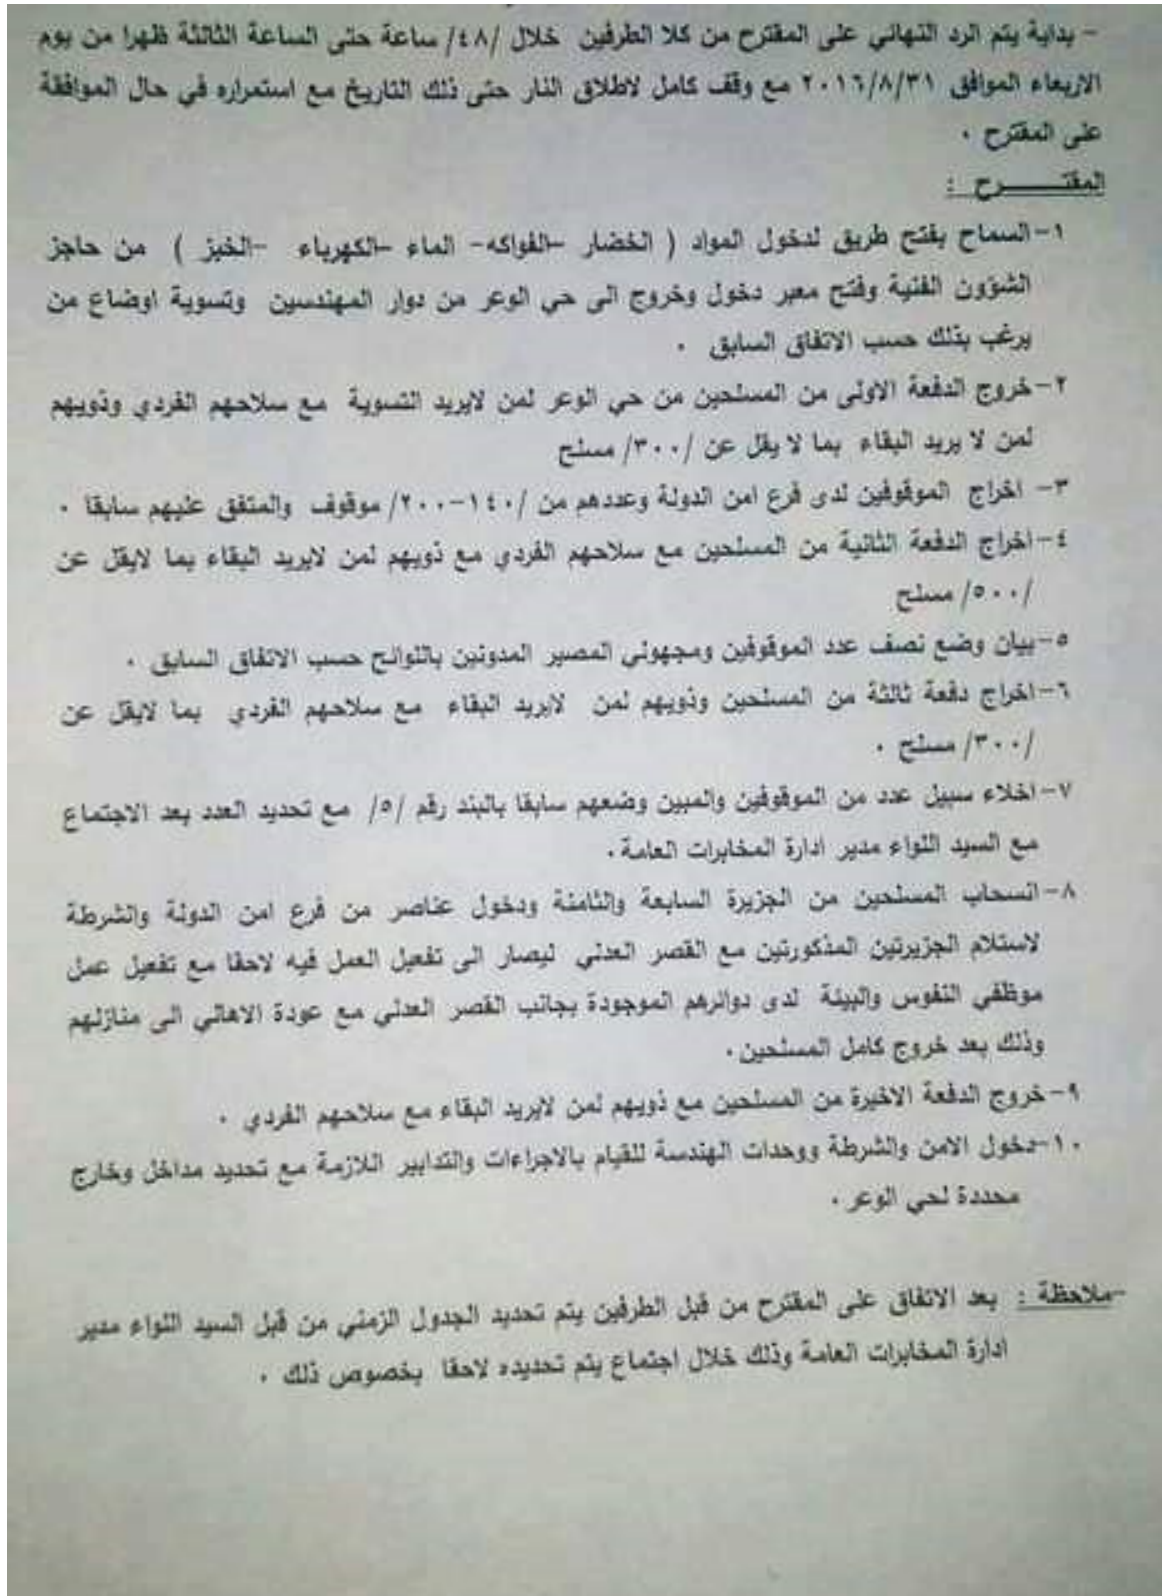 - بداية يتم الرد النهائي على المقترح من كلا الطرفين خلال /٤٨/ ساعة حتى الساعة الثالثة ظهرا من يوم
الاربعاء الموافق ٢٠١٦/٨/٣١ مع وقف كامل لاطلاق النار حتى ذلك التاريخ مع استمراره في حال الموافقة
على المقترح .
المقتـــــرح :
١-السماح بفتح طريق لدخول المواد ( الخضار -الفواكه- الماء -الكهرباء -الخبز ) من حاجز
الشؤون الفنية وفتح معبر دخول وخروج الى حي الوعر من دوار المهندسين وتسوية اوضاع من
يرغب بذلك حسب الاتفاق السابق .
٢-خروج الدفعة الاولى من المسلحين من حي الوعر لمن لايريد التسوية مع سلاحهم الفردي وذويهم
لمن لا يريد البقاء بما لا يقل عن /٣٠٠/ مسلح
٣- اخراج الموقوفين لدى فرع امن الدولة وعددهم من /١٤٠-٢٠٠/ موقوف والمتفق عليهم سابقا .
٤-اخراج الدفعة الثانية من المسلحين مع سلاحهم الفردي مع ذويهم لمن لايريد البقاء بما لايقل عن
/٥٠٠/ مسلح
٥-بيان وضع نصف عدد الموقوفين ومجهولي المصير المدونين باللوائح حسب الاتفاق السابق .
٦-اخراج دفعة ثالثة من المسلحين وذويهم لمن لايريد البقاء مع سلاحهم الفردي بما لايقل عن
/٣٠٠/ مسلح .
٧-اخلاء سبيل عدد من الموقوفين والمبين وضعهم سابقا بالبند رقم /٥/ مع تحديد العدد بعد الاجتماع
مع السيد اللواء مدير ادارة المخابرات العامة .
٨-انسحاب المسلحين من الجزيرة السابعة والثامنة ودخول عناصر من فرع امن الدولة والشرطة
لاستلام الجزيرتين المذكورتين مع القصر العدلي ليصار الى تفعيل العمل فيه لاحقا مع تفعيل عمل
موظفي النفوس والبيئة لدى دوائرهم الموجودة بجانب القصر العدلي مع عودة الاهالي الى منازلهم
وذلك بعد خروج كامل المسلحين .
٩-خروج الدفعة الاخيرة من المسلحين مع ذويهم لمن لايريد البقاء مع سلاحهم الفردي .
١٠-دخول الامن والشرطة ووحدات الهندسة للقيام بالاجراءات والتدابير اللازمة مع تحديد مداخل وخارج
محددة لحي الوعر .
-ملاحظة : بعد الاتفاق على المقترح من قبل الطرفين يتم تحديد الجدول الزمني من قبل السيد اللواء مدير
ادارة المخابرات العامة وذلك خلال اجتماع يتم تحديده لاحقا بخصوص ذلك .